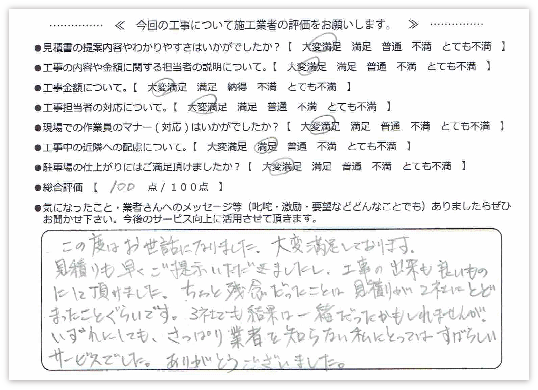 ≪ 今回の工事について施工業者の評価をお願いします。 ≫
●見積書の提案内容やわかりやすさはいかがでしたか？【 大変満足 満足 普通 不満 とても不満 】
●工事の内容や金額に関する担当者の説明について。【 大変満足 満足 普通 不満 とても不満 】
●工事金額について。【 大変満足 満足 納得 不満 とても不満 】
●工事担当者の対応について。【 大変満足 満足 普通 不満 とても不満 】
●現場での作業員のマナー（対応）はいかがでしたか？【 大変満足 満足 普通 不満 とても不満 】
●工事中の近隣への配慮について。【 大変満足 満足 普通 不満 とても不満 】
●駐車場の仕上がりにはご満足頂けましたか？【 大変満足 満足 普通 不満 とても不満 】
●総合評価 【 100 点／100点 】
●気になったこと・業者さんへのメッセージ等（叱咤・激励・要望などどんなことでも）ありましたらぜひ
お聞かせ下さい。今後のサービス向上に活用させて頂きます。
この度はお世話になりました。大変満足しております。
見積りも早くご提示いただきましたし、工事の出来も良いもの
にして頂けました。ちょっと残念だったことは見積りが2社にとど
まったことぐらいです。3社でも結果は一緒だったかもしれませんが。
いずれにしても、さっぱり業者を知らない私にとってはすばらしい
サービスでした。ありがとうございました。